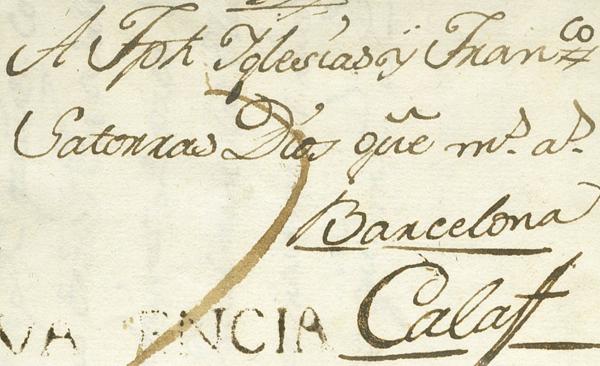 A Jph Yglesias ÿ Fran.co
Satorras Dios que m.s a.s
Barcelona
VA ENCIA Calaff